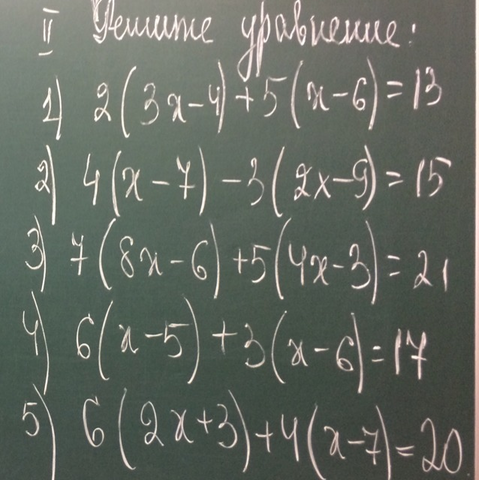 II Решите уравнение:
1) 2(3x-4)+5(x-6)=13
2) 4(x-7)-3(2x-9)=15
3) 7(8x-6)+5(4x-3)=21
4) 6(x-5)+3(x-6)=17
5) 6(2x+3)+4(x-7)=20